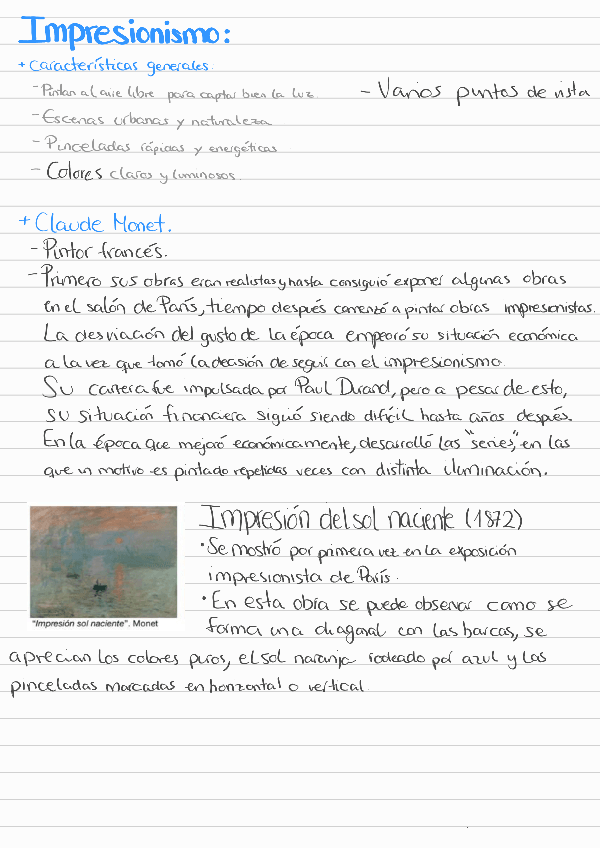 Impresionismo:
+ Características generales:
- Pintan al aire libre para captar bien la luz.
- Varios puntos de vista
- Escenas urbanas y naturaleza
- Pinceladas rápidas y energéticas
- Colores claros y luminosos.
+ Claude Monet.
- Pintor francés.
- Primero sus obras eran realistas y hasta consiguió exponer algunas obras
en el salón de París, tiempo después comenzó a pintar obras impresionistas.
La desviación del gusto de la época empeoró su situación económica
a la vez que tomó la decisión de seguir con el impresionismo.
Su carrera fue impulsada por Paul Durand, pero a pesar de esto,
su situación financiera siguió siendo difícil hasta años después.
En la época que mejoró económicamente, desarrolló las "series", en las
que un motivo es pintado repetidas veces con distinta iluminación.
Impresión del sol naciente (1872)
• Se mostró por primera vez en la exposición
impresionista de París.
• En esta obra se puede observar como se
forma una diagonal con las barcas, se
aprecian los colores puros, el sol naranja rodeado por azul y las
pinceladas marcadas en horizontal o vertical.
"Impresión sol naciente". Monet